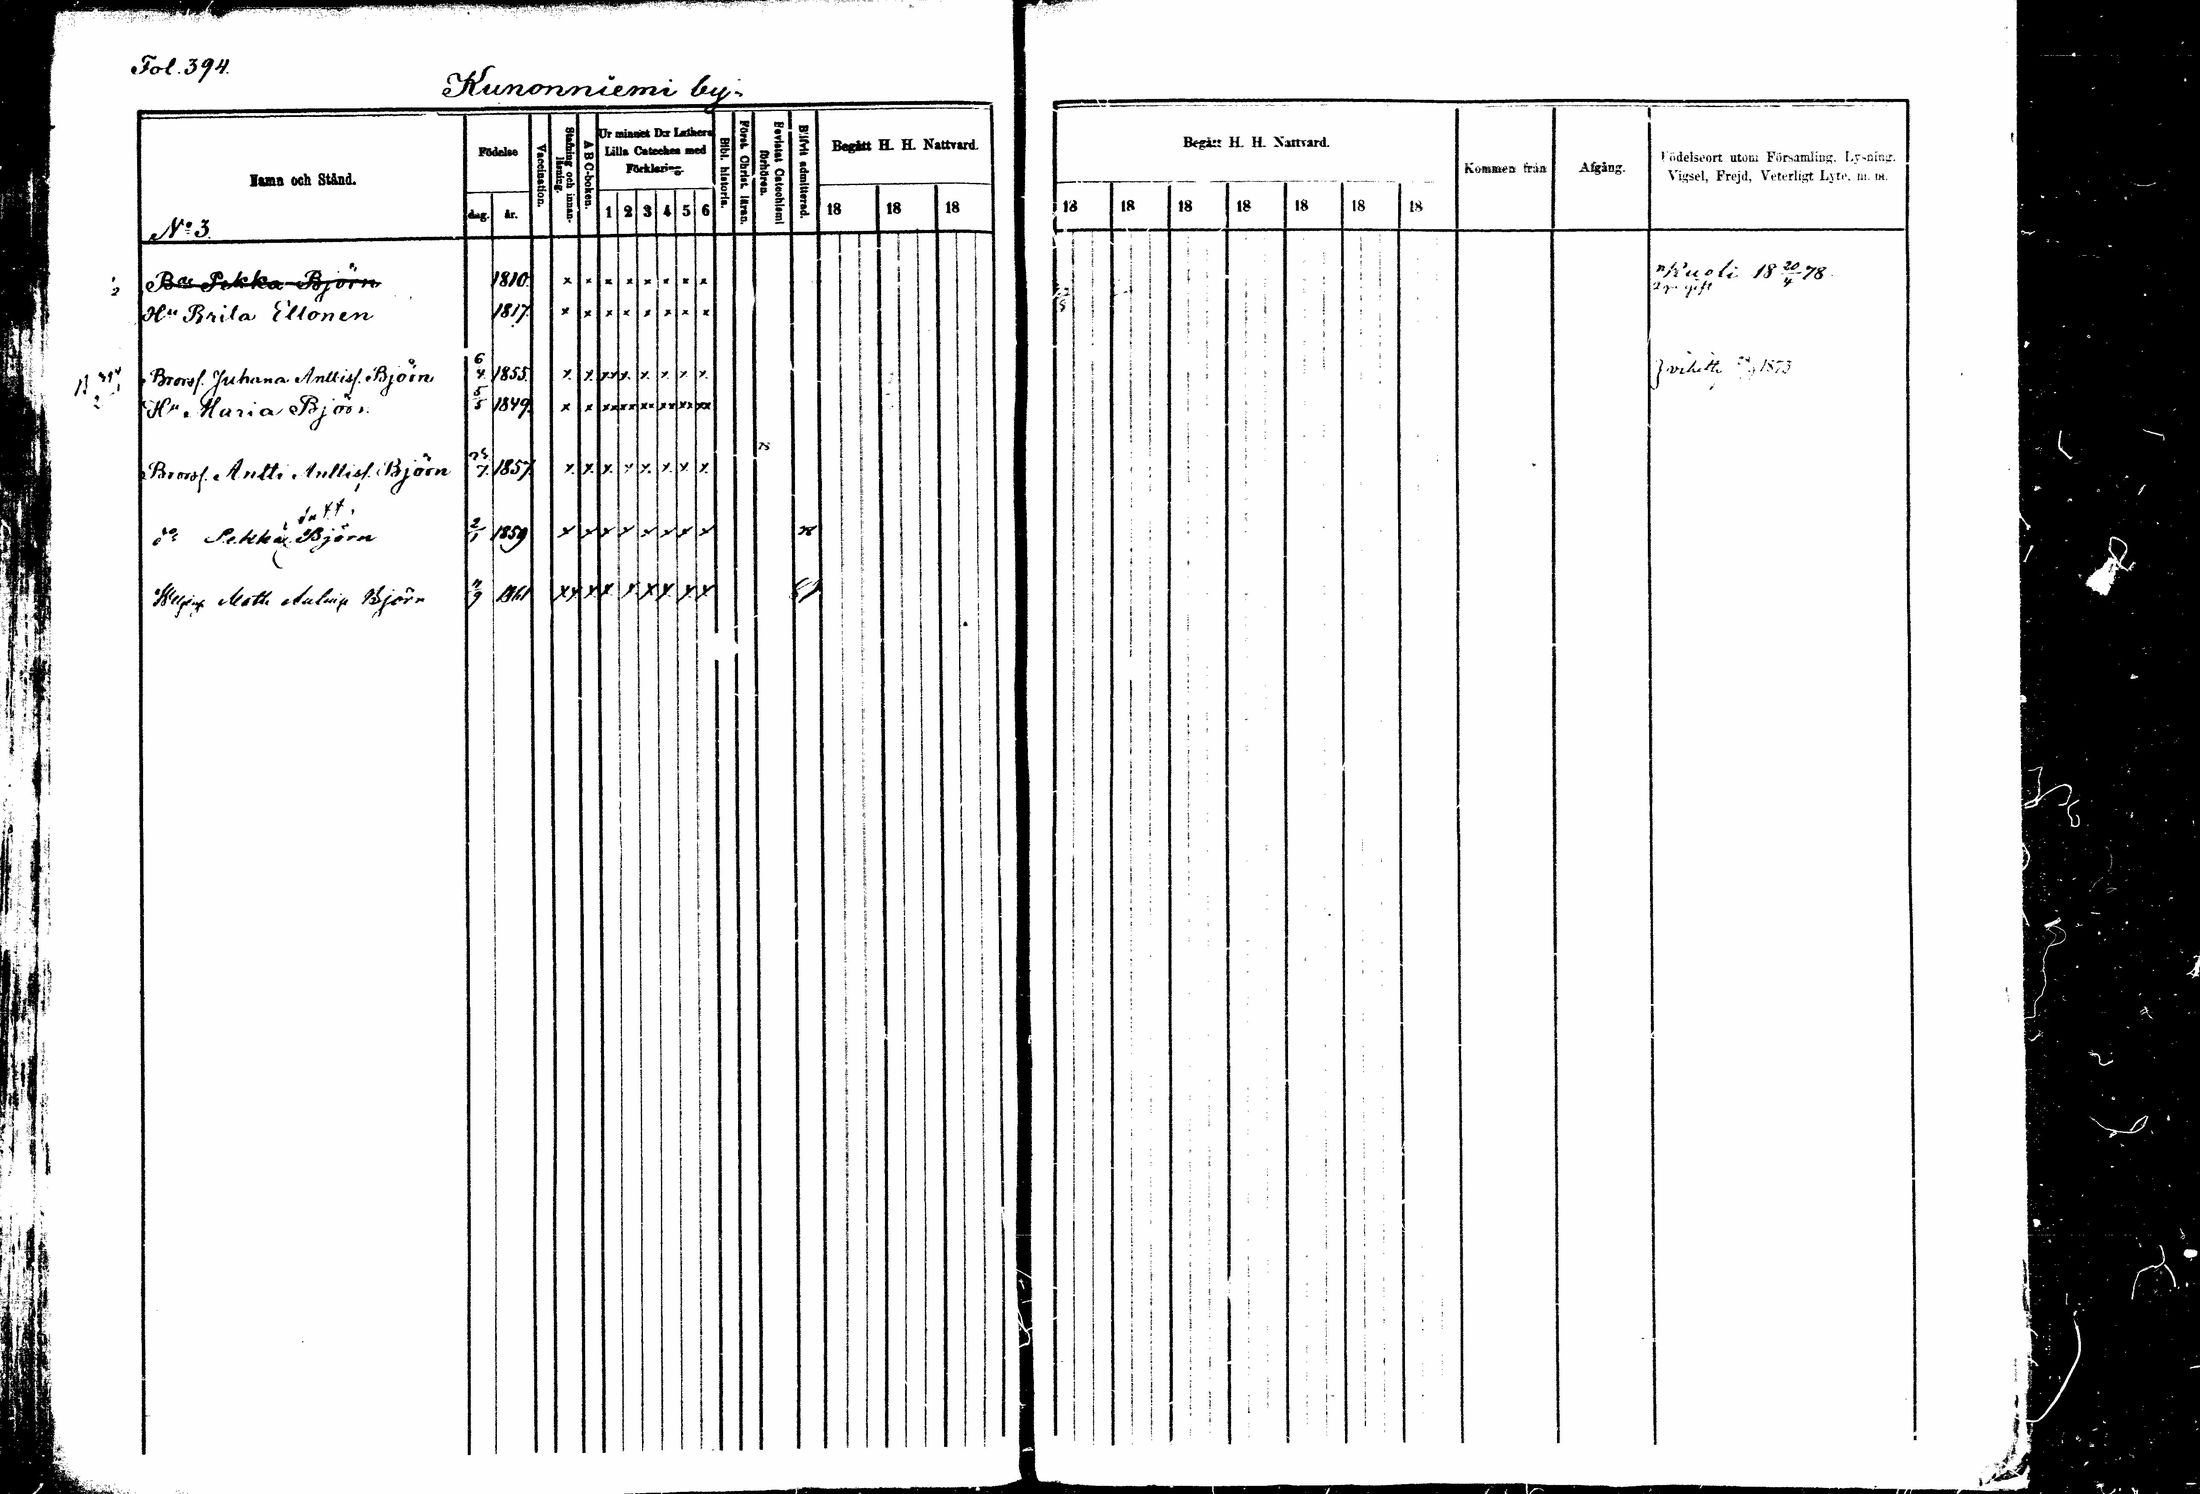 Fol. 394.
Kunonniemi by.
Namn och Stånd.
Födelse
dag. år.
Vaccination.
Stafning och innanläsning.
A B C-boken.
Ur minnet D:r Luthers Lilla Cateches med Förklaring.
1 2 3 4 5 6
Bibl. historia.
Först. Christ. läran.
Bevistat Catechismi förhören.
Blifvit admitterad.
Begått H. H. Nattvard.
18 18 18
Begått H. H. Nattvard.
18 18 18 18 18 18 18
Kommen från
Afgång.
Födelseort utom Församling. Lysning.
Vigsel, Frejd, Veterligt Lyte, m. m.
No 3.
Pekka Björn 1810 x x x x x x x x Kuoli 18 20/4 78.
Hu Brita Ellonen 1817 x x x x x x x x
Brorss. Juhana Anttis. Björn 6/4 1855 x x x x x x x x x vihitty 1873
Hu Maria Björn 5/5 1849 x x xx xx xx xx xx xx
Brorss. Antti Anttis. Björn 7 1857 x x x x x x x x
do Pekka Björn 2/1 1859 x x x x x x x x 78
Matts Björn 9 1861 xx x x x x x x x 81